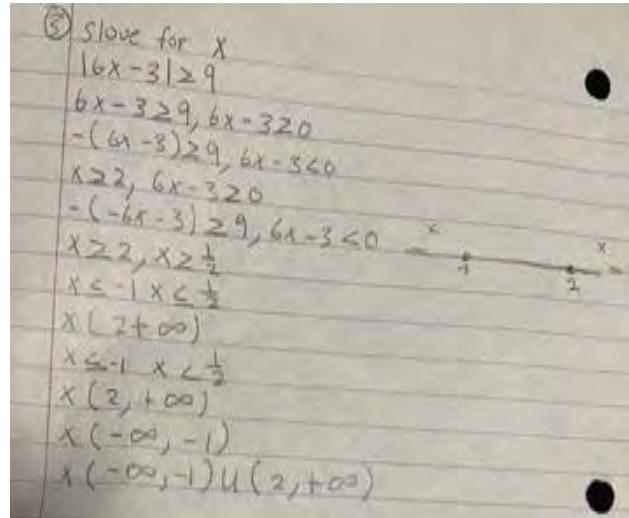 ⑤ Slove for X
|6x-3|≥9
6x-3≥9, 6x-3≥0
-(6x-3)≥9, 6x-3≤0
x≥2, 6x-3≥0
-(-6x-3)≥9, 6x-3<0
x≥2, x≥1/2
x≤-1 x≤1/2
x(2+∞)
x≤-1 x<1/2
x(2,+∞)
x(-∞,-1)
x(-∞,-1)U(2,+∞)
x x
-1 2